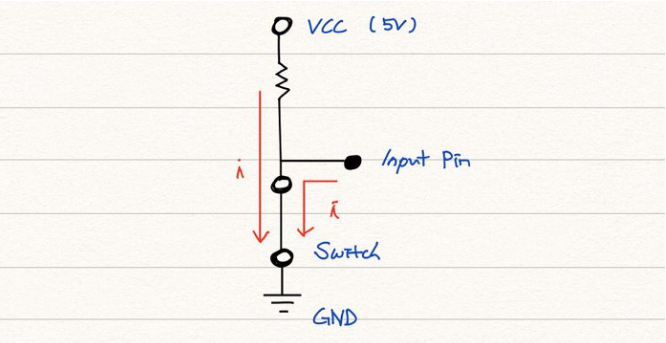 VCC (5V)
Input Pin
i
i
Switch
GND